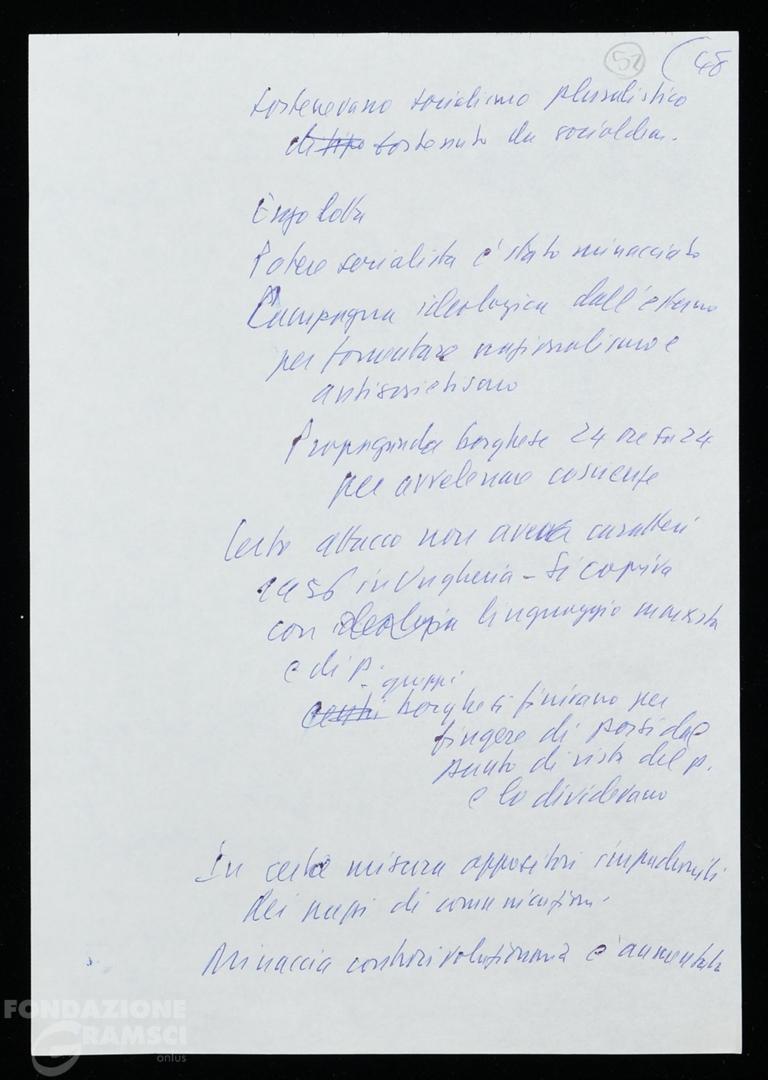 52 (48
sostenevano socialismo pluralistico
di tipo sostenuto da socialdem.
Enzo lotta
Potere socialista è stato minacciato
Campagna ideologica dall'esterno
per fomentare nazionalismo e
antisovietismo
Propaganda borghese 24 ore su 24
per avvelenare coscienze
Certo attacco non aveva caratteri
1956 in Ungheria - Si copriva
con ideologia linguaggio marxista
e di p.
gruppi
centri borghesi finivano per
fingere di porsi dal
punto di vista del p.
e lo dividevano
In certa misura oppositori impadroniti
dei mezzi di comunicazione.
Minaccia controrivoluzionaria è aumentata
FONDAZIONE
GRAMSCI
onlus